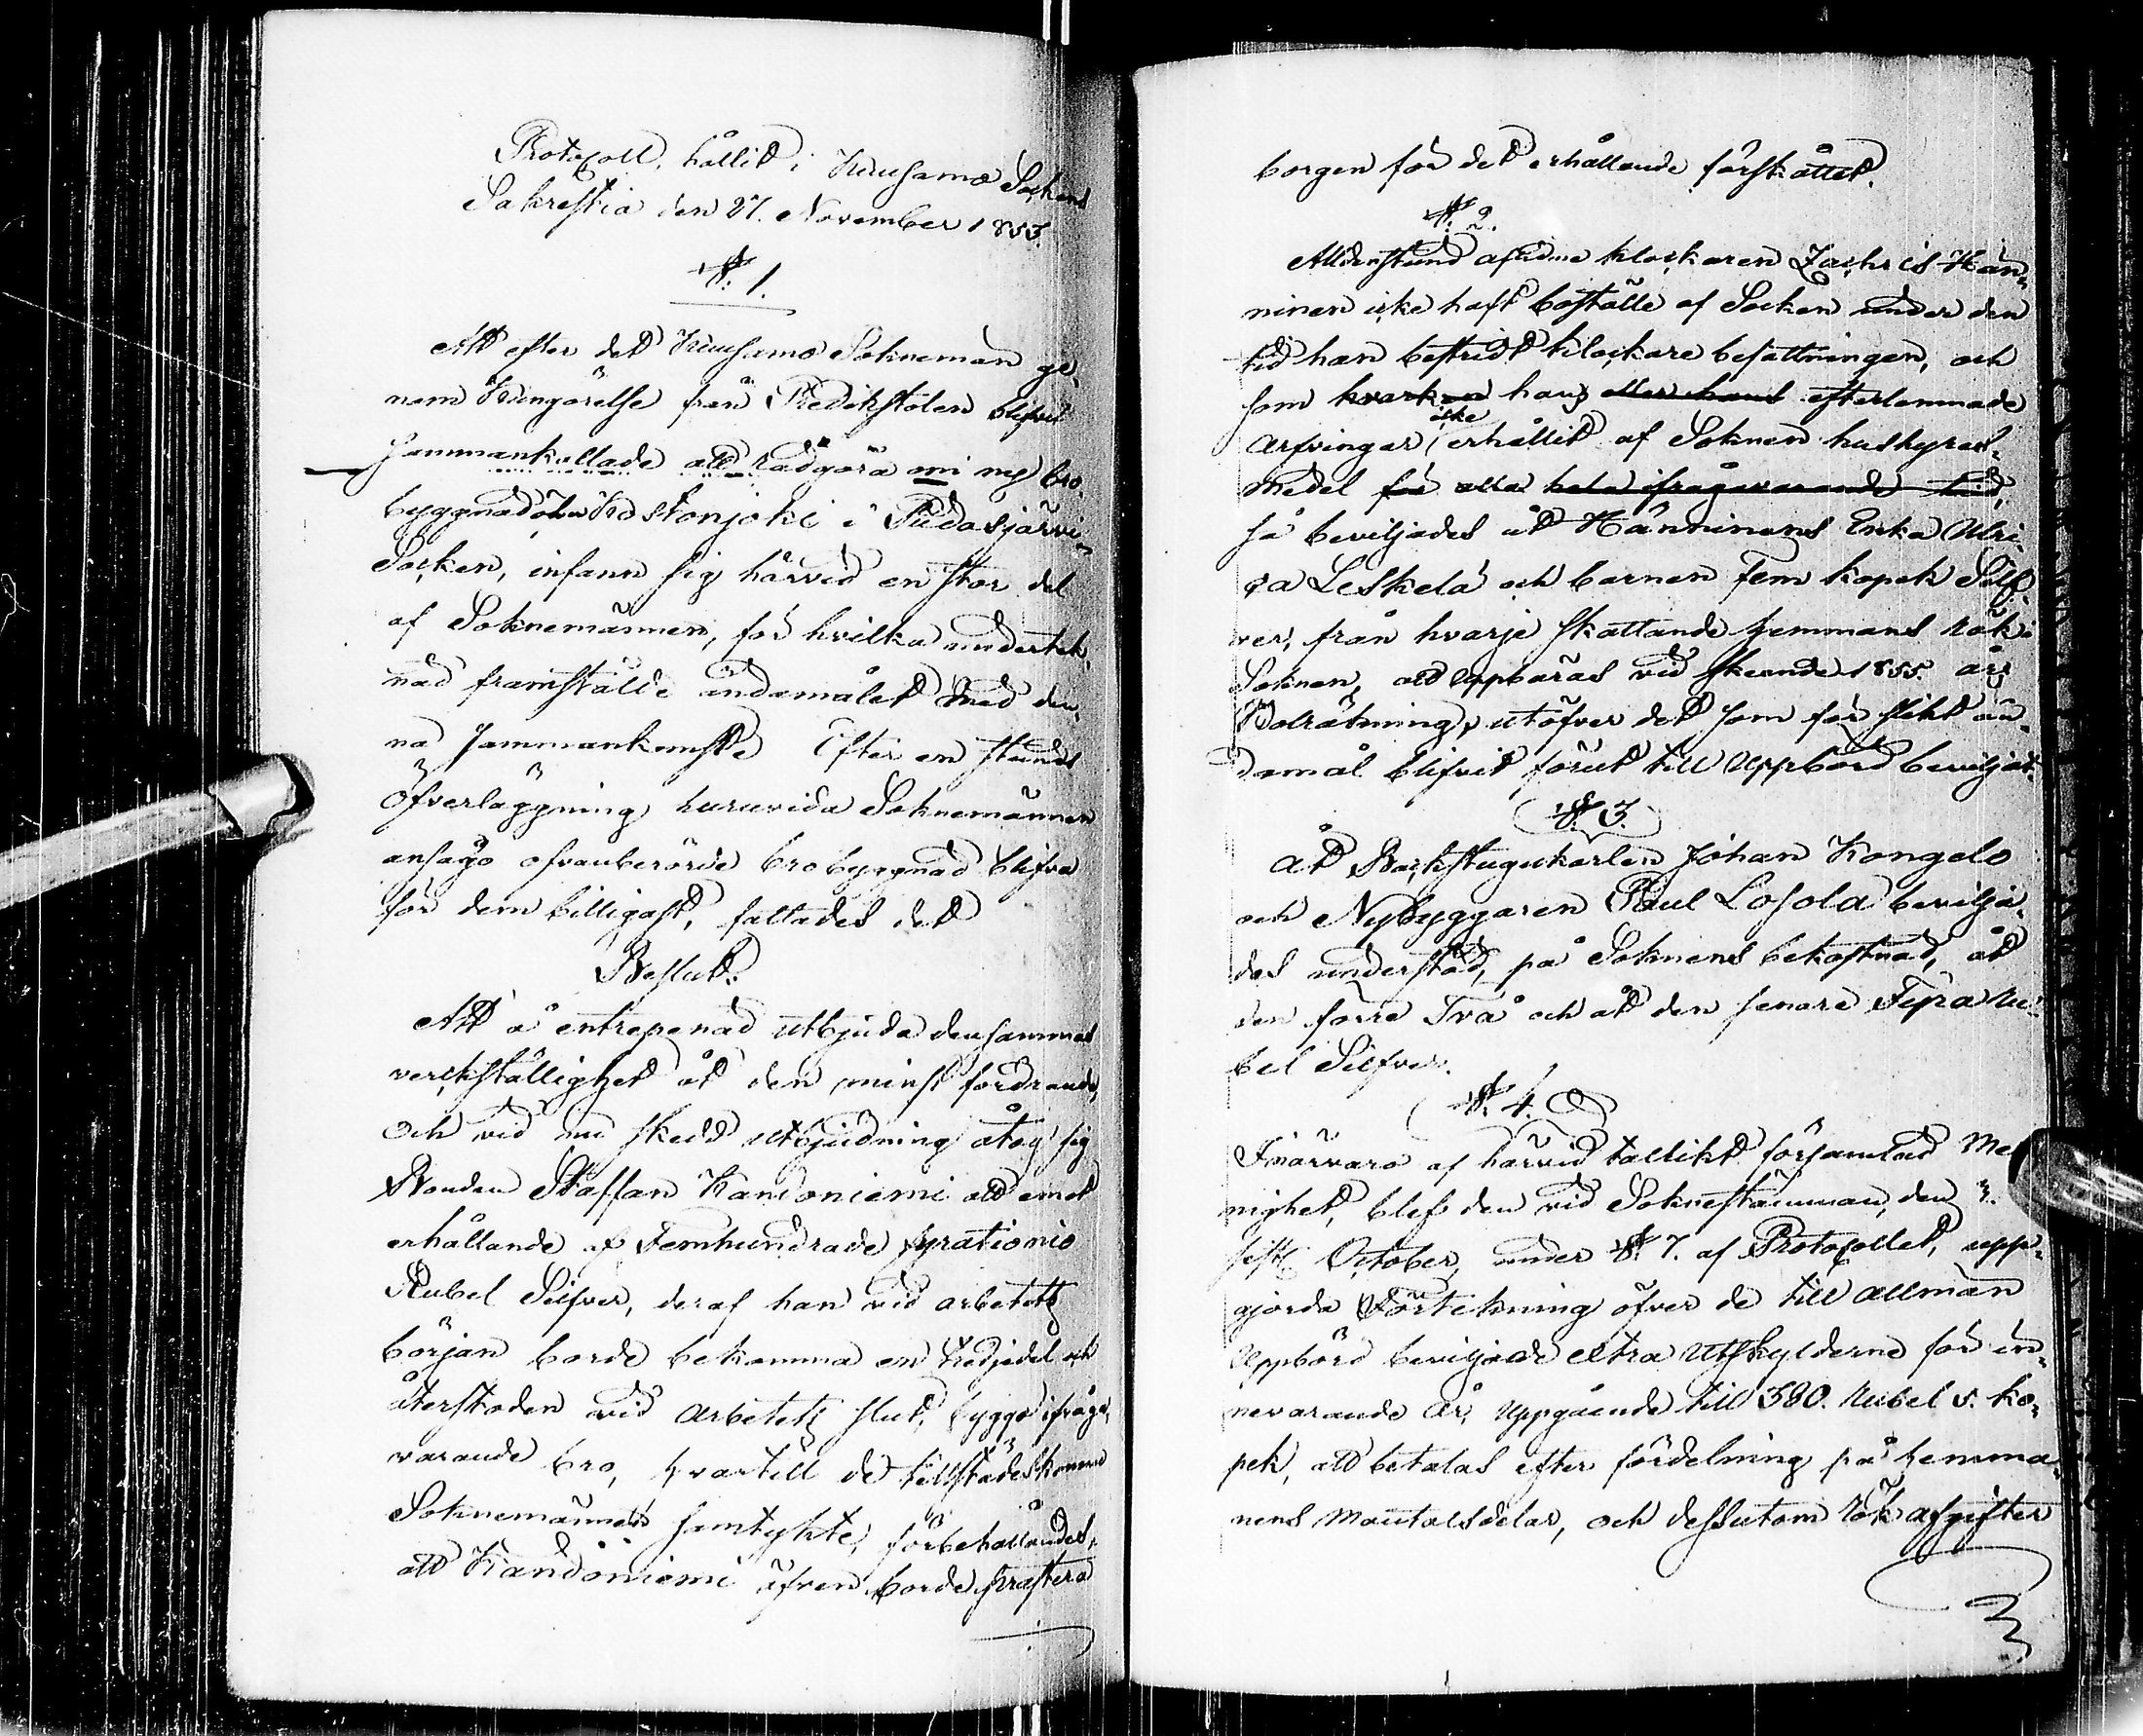 Protocoll, hållit i Kuusamo Sockens
Sakrestia den 27. November 1853.
§. 1.
Att efter det Kuusamo Soknemän ge¬
nom Kungörelse från Predikstolen blifvit
sammankallade att rådgöra om ny bro
byggnad öfver Kostonjoki i Pudasjärvi
Socken, infann sig härvid en stor del
af Soknemännen, för hvilka underteck¬
nad framstälde ändamålet med den¬
na sammankomst. Efter en stunds
öfverläggning huruvida Soknemännen
ansågo ofvanberörde brobyggnad blifva
för dem billigast, fattades det
Beslut:
Att å entrepenad utbjuda densammas
verckställighet åt den minst fordrande,
och vid nu skedd utbjudning åtog sig
Bonden Staffan Kandoniemi att emot
erhållande af Femhundrade fyrationio
Rubel Silfver, deraf han vid arbetets
början borde bekomma en tredjedel och
återstoden vid arbetets slut, bygga ifråga¬
varande bro, hvartill de tillstädeskomne
Soknemännen samtyckte, förbehållandes,
att Kandoniemi äfven borde præstera
borgen för det erhållande förskottet.
§. 2.
Alldenstund aflidne klockaren Zachris Hän¬
ninen icke haft boställe af Socken under den
tid han bestridt klockare befattningen, och
som hvarken hans eller hans efterlemnade
arfvingar icke erhållit af Soknen hushyres¬
medel för alla hela ifrågavarande tid,
så beviljades åt Hänninens Enka Ulri¬
ca Leskelä och barnen fem kopek Silf¬
ver, från hvarje skattande hemmans rök i
Soknen, att uppbäras vid skeende 1855. års
Bolräkning, utöfver det som för slikt än¬
damål blifvit förut till Uppbörd beviljat.
§. 3.
Åt Backstugukarlen Johan Kongelo
och Nybyggaren Paul Lohola bevilja¬
des understöd, på Soknens bekostnad, åt
den förre Två och åt den senare Fyra Ru¬
bel Silfver.
§. 4.
I närvaro af härvid talrikt församlad Me
nighet, blef den vid Soknestämman, den 3.
sistl. October, under §. 7. af Protocollet, upp¬
gjorda Förtekning öfver de till allmän
Uppbörd beviljade extra Utskylderne för in¬
nevarande år, uppgående till 380. Rubel 5. ko¬
pek, att betalas efter fördelning på hemma¬
nens mantalsdelar, och dessutom rök afgifter